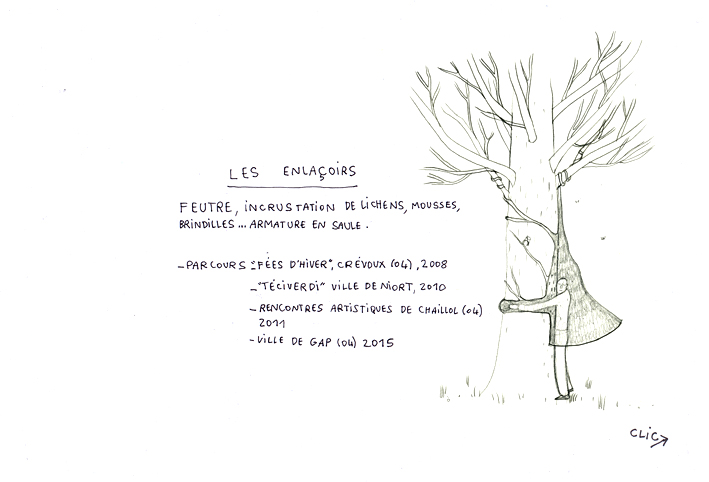 LES ENLAÇOIRS
FEUTRE, INCRUSTATION DE LICHENS, MOUSSES,
BRINDILLES... ARMATURE EN SAULE.
- PARCOURS "FÉES D'HIVER", CRÉVOUX (04), 2008
- "TÉCIVERDI" VILLE DE NIORT, 2010
- RENCONTRES ARTISTIQUES DE CHAILLOL (04)
2011
- VILLE DE GAP (04) 2015
CLIC